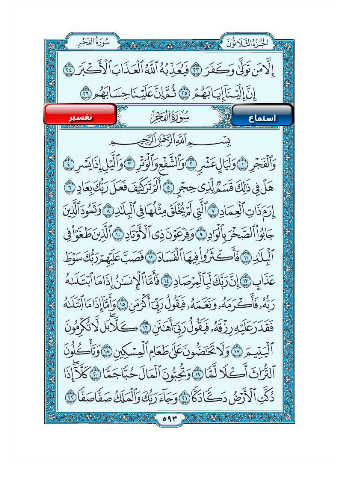 سورة الفجر
الجزء الثلاثون
إِلَّا مَن تَوَلَّىٰ وَكَفَرَ ٢٣ فَيُعَذِّبُهُ اللَّهُ الْعَذَابَ الْأَكْبَرَ ٢٤
إِنَّ إِلَيْنَا إِيَابَهُمْ ٢٥ ثُمَّ إِنَّ عَلَيْنَا حِسَابَهُم ٢٦
تفسير
سُورَةُ الفَجْرِ
استماع
بِسْمِ اللَّهِ الرَّحْمَٰنِ الرَّحِيمِ
وَالْفَجْرِ ١ وَلَيَالٍ عَشْرٍ ٢ وَالشَّفْعِ وَالْوَتْرِ ٣ وَاللَّيْلِ إِذَا يَسْرِ ٤
هَلْ فِي ذَٰلِكَ قَسَمٌ لِّذِي حِجْرٍ ٥ أَلَمْ تَرَ كَيْفَ فَعَلَ رَبُّكَ بِعَادٍ ٦
إِرَمَ ذَاتِ الْعِمَادِ ٧ الَّتِي لَمْ يُخْلَقْ مِثْلُهَا فِي الْبِلَادِ ٨ وَثَمُودَ الَّذِينَ
جَابُوا الصَّخْرَ بِالْوَادِ ٩ وَفِرْعَوْنَ ذِي الْأَوْتَادِ ١٠ الَّذِينَ طَغَوْا فِي
الْبِلَادِ ١١ فَأَكْثَرُوا فِيهَا الْفَسَادَ ١٢ فَصَبَّ عَلَيْهِمْ رَبُّكَ سَوْطَ
عَذَابٍ ١٣ إِنَّ رَبَّكَ لَبِالْمِرْصَادِ ١٤ فَأَمَّا الْإِنسَانُ إِذَا مَا ابْتَلَاهُ
رَبُّهُ فَأَكْرَمَهُ وَنَعَّمَهُ فَيَقُولُ رَبِّي أَكْرَمَنِ ١٥ وَأَمَّا إِذَا مَا ابْتَلَاهُ
فَقَدَرَ عَلَيْهِ رِزْقَهُ فَيَقُولُ رَبِّي أَهَانَنِ ١٦ كَلَّا بَل لَّا تُكْرِمُونَ
الْيَتِيمَ ١٧ وَلَا تَحَاضُّونَ عَلَىٰ طَعَامِ الْمِسْكِينِ ١٨ وَتَأْكُلُونَ
التُّرَاثَ أَكْلًا لَّمًّا ١٩ وَتُحِبُّونَ الْمَالَ حُبًّا جَمًّا ٢٠ كَلَّا إِذَا
دُكَّتِ الْأَرْضُ دَكًّا دَكًّا ٢١ وَجَاءَ رَبُّكَ وَالْمَلَكُ صَفًّا صَفًّا ٢٢
٥٩٣